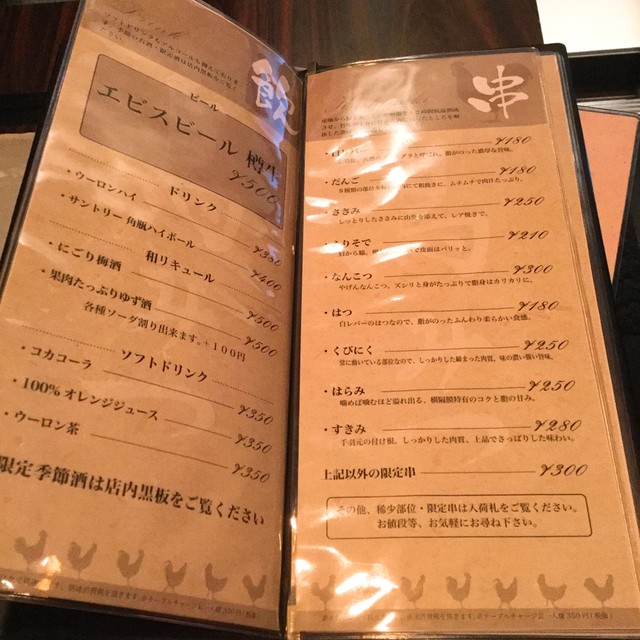 飲
ビール
エビスビール 樽生
¥500
ドリンク
・ウーロンハイ
¥350
・サントリー 角瓶ハイボール
¥400
和リキュール
・にごり梅酒
¥500
・果肉たっぷりゆず酒
¥500
各種ソーダ割り出来ます。+100円
ソフトドリンク
・コカコーラ
¥350
・100% オレンジジュース
¥350
・ウーロン茶
¥350
限定季節酒は店内黒板をご覧ください
串
・白レバー ¥180
脂がのった濃厚な旨味。
・だんご ¥180
ムチムチで肉汁たっぷり。
・ささみ ¥250
しっとりしたささみに山葵を添えて、レア焼きで。
¥210
皮面はパリッと。
・なんこつ ¥300
やげんなんこつ。ズシリと身がたっぷりで脂身はカリカリに。
・はつ ¥180
白レバーのはつなので、脂がのったふんわり柔らかい食感。
・くびにく ¥250
常に動いている部位なので、しっかりした締まった肉質、味の濃い強い旨味。
・はらみ ¥250
噛めば噛むほど溢れ出る、横隔膜特有のコクと脂の甘み。
・すきみ ¥280
手羽元の付け根。しっかりした肉質、上品でさっぱりした味わい。
上記以外の限定串 ¥300
その他、稀少部位・限定串は入荷札をご覧ください。
お値段等、お気軽にお尋ね下さい。